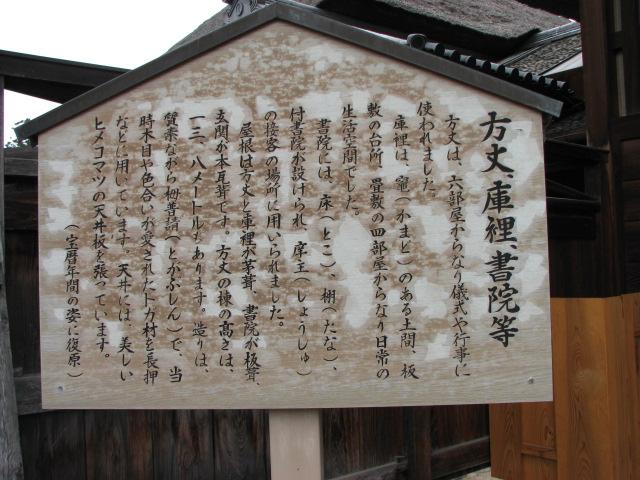 方丈、庫裡、書院等
方丈は、六部屋からなり儀式や行事に
使われました。
庫裡は、竈(かまど)のある土間、板
敷の台所、畳敷の四部屋からなり日常の
生活空間でした。
書院には、床(とこ)、棚(たな)、
付書院が設けられ、庠主(しょうしゅ)
の接客の場所に用いられました。
屋根は方丈と庫裡が茅葺、書院が板葺、
玄関が本瓦葺です。方丈の棟の高さは、
一三、八メートルあります。造りは、
質素ながら栂普請(とがぶしん)で、当
時木目や色合いが愛されたトガ材を長押
などに用いています。天井には、美しい
ヒメコマツの天井板を張っています。
(宝暦年間の姿に復原)